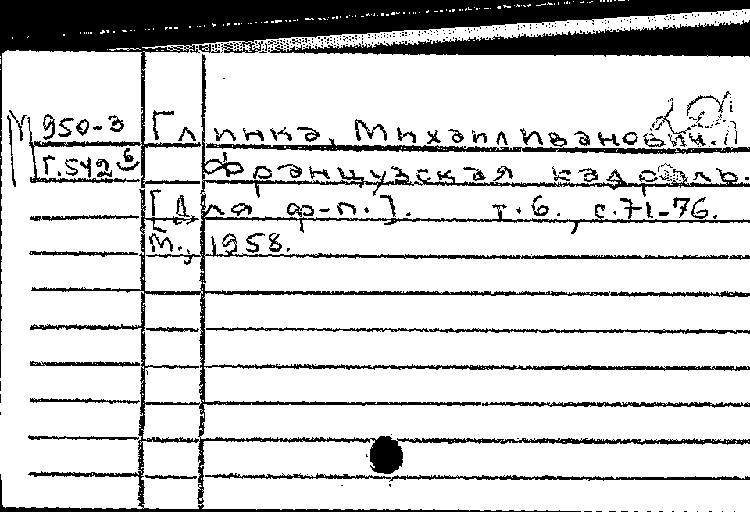 М 950-3 Глинка, Михаил Иванович.
Г.542 б Французская кадриль.
[Для ф-п.]. т.6., с.71-76.
М., 1958.